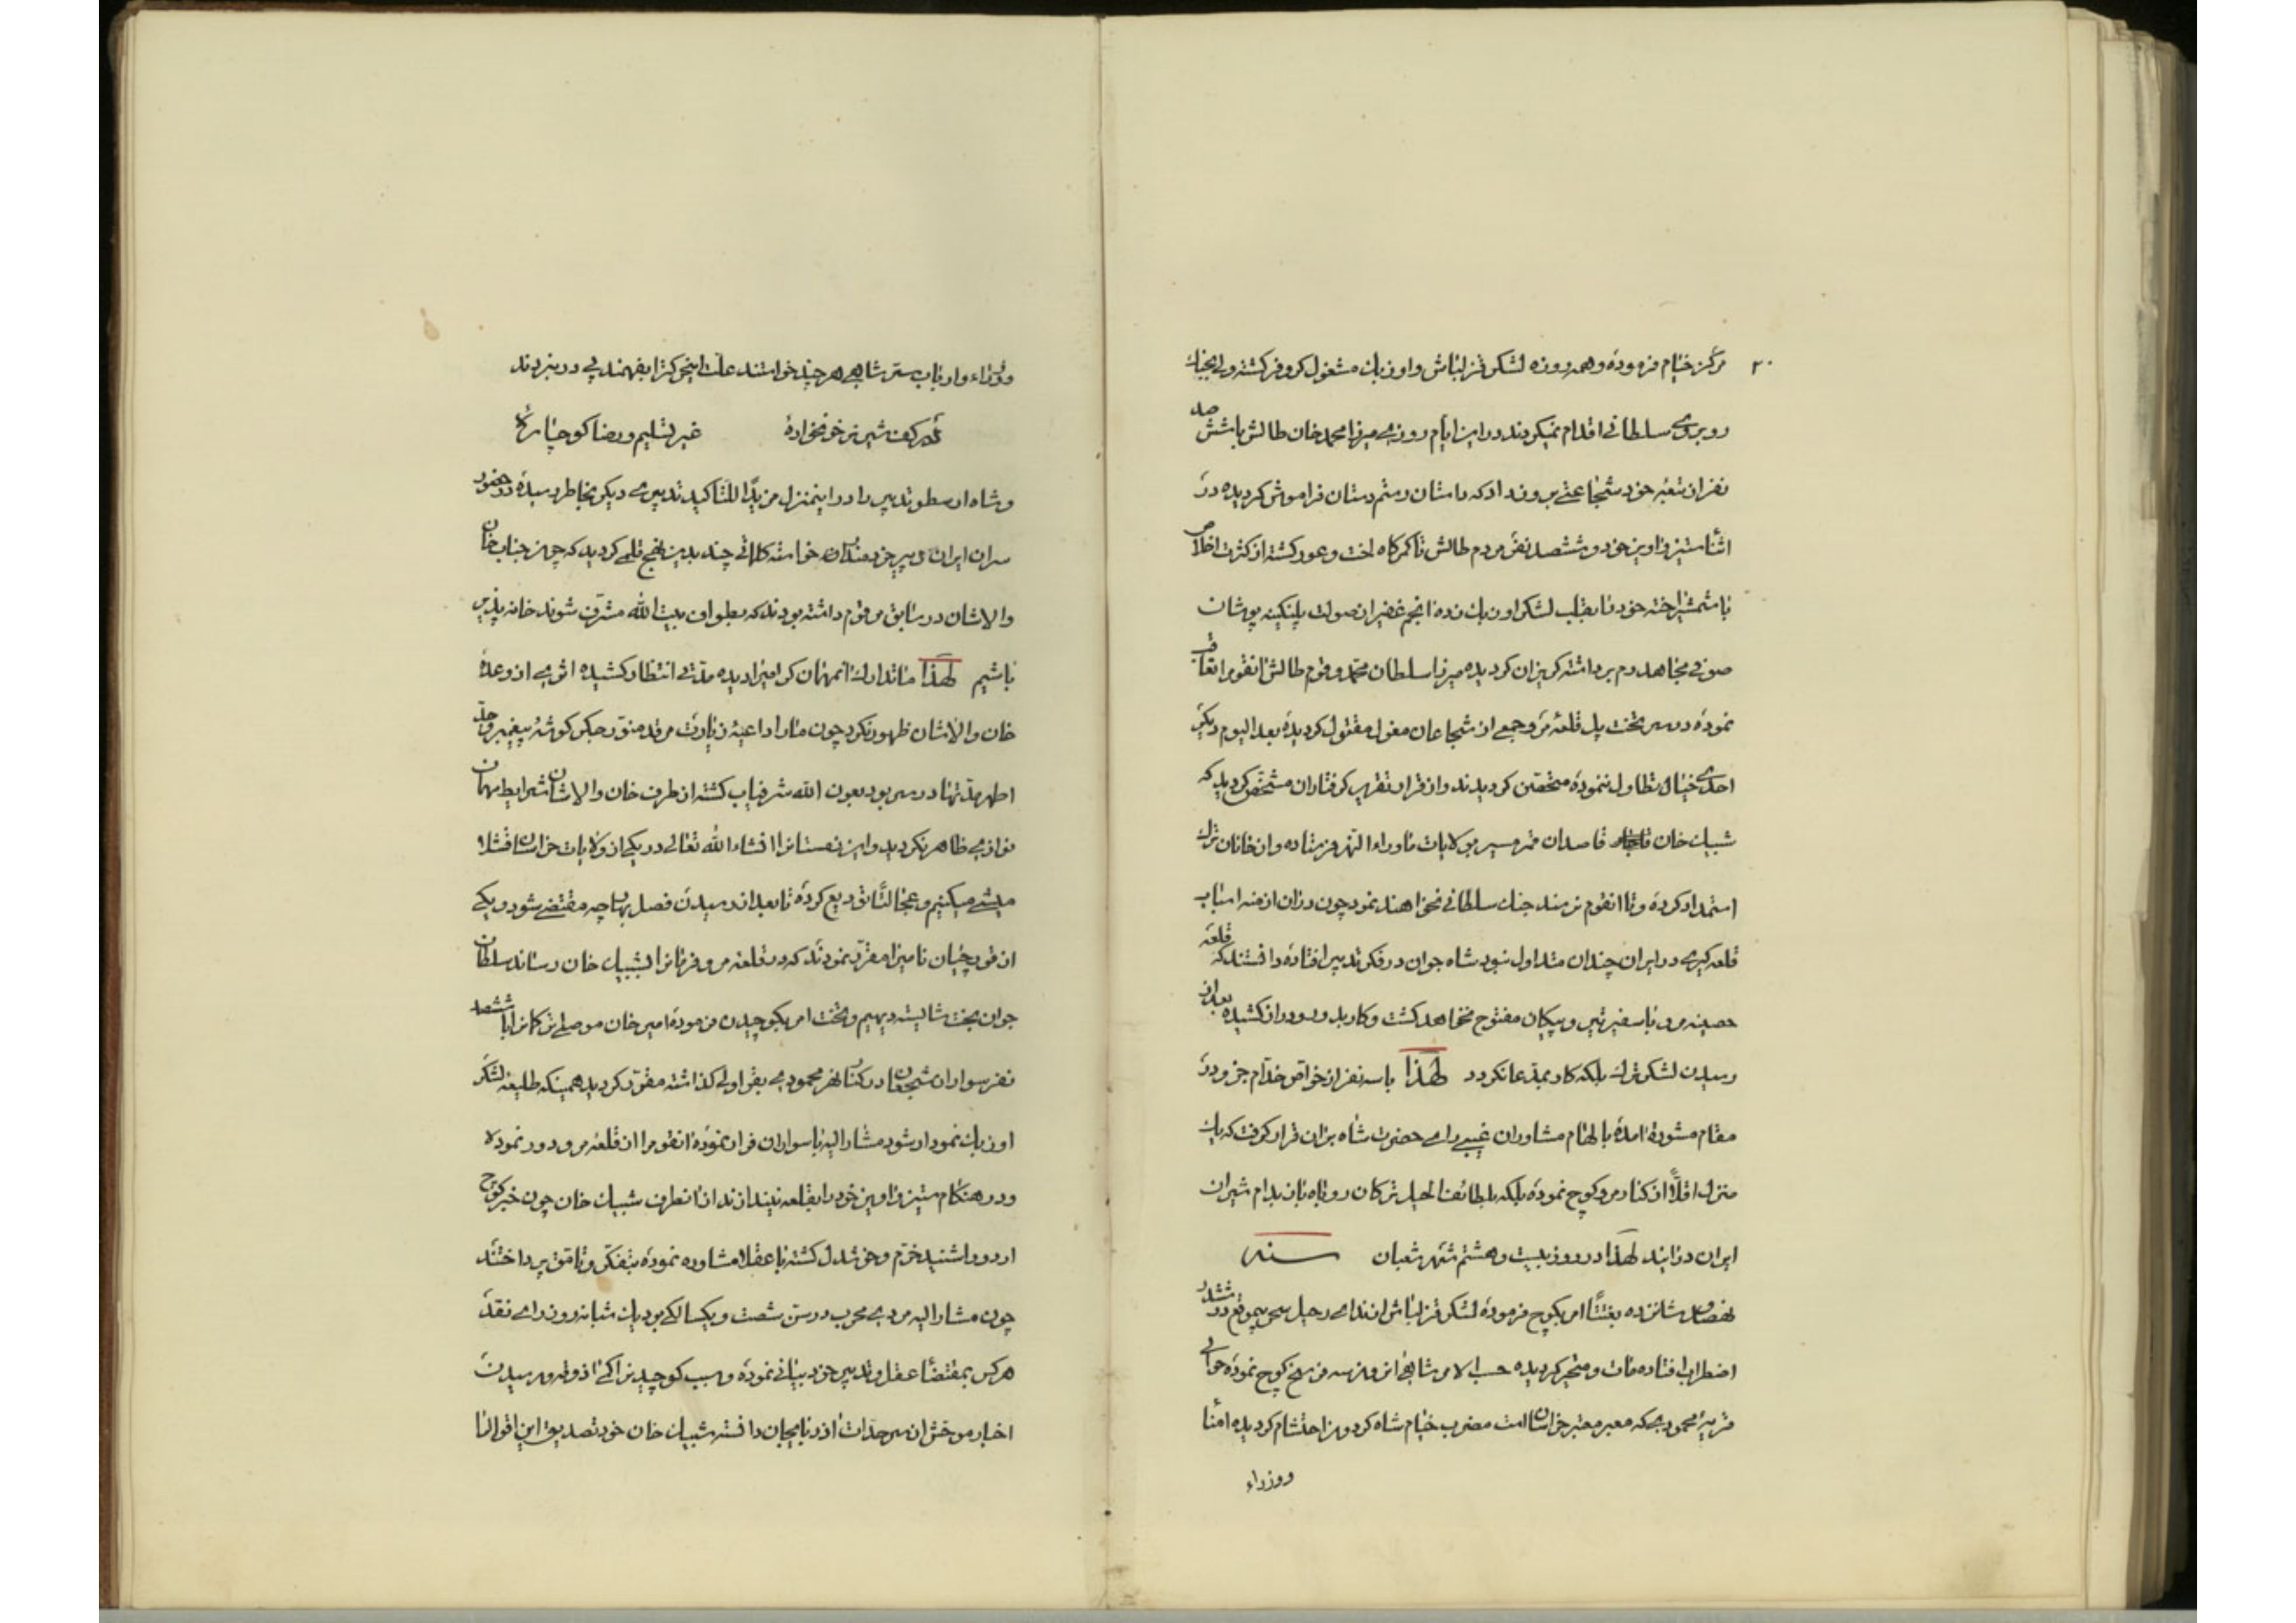 ۲۰
مرکز خیام فرموده و همه روزه لشکر قزلباش و اوزبک مشغول کر و فر کشته ولی بجنك
روبروی سلطانی اقدام نمیکردند در این ایام روزی میرزا محمد خان طالش با ششصد
نفر از تبعه خود شجاعتی بروز داد که داستان رستم دستان فراموش کردیده در
اثنا ستیز و اویز خود و ششصد نفر مردم طالش تا کمرکاه لخت و عور کشته از کثرت اخلاص
با شمشیر اخته خود را بقلب لشکر اوزبک زده انجم غفیر از صولت پلنکینه پوشان
صوفی مجاهد رم برداشته کریزان کردیده میرزا سلطان محمد و قوم طالش انقوم را تعاقب
نموده در سر تخت پل قلعه مرو جمعی از شجاعان مغول مقتول کردیده بعد الیوم دیکر
احدی خیال تطاول ننموده متحصن کردیدند و از قرار تقریر کرفتاران مشخص کردید که
شیبک خان قاصدان قمر مسیر بولایات ماوراء النهر فرستاده و از خانان ترك
استمداد کرده و تا انقوم نرسند جنك سلطانی نخواهند نمود چون در آن ازمنه اسباب
قلعه کیری در ایران چندان متداول نبود شاه جوان در فکر تدبیر افتاده دانستند که قلعه
حصینه مرو با سفیر تیر و پیکان مفتوح نخواهد کشت و کار بدور و دراز کشیده بعد از
رسیدن لشکر ترك بلکه کار بمدعا نکردد لهذا با سه نفر از خواص خدام جزو در
مقام مشوره امده با لهام مشاوران غیبی رای حضرت شاه بر آن قرار کرفت که یك
منزل اقلاً از کنار مرو کوچ نموده بلکه بلطائف الحیل ترکان روباه بان بدام شیران
ایران درایند لهذا در روز بیست و هشتم شهر شعبان سنه
نهصد و شانزده بغتتاً امر بکوچ فرموده لشکر قزلباش از ندای رحیل بی موقع در ششدر
اضطراب افتاده مات و متحیر کردیده حسب الامر شاهی از مدرسه فرسخ کوچ نموده حوالی
قریهٔ محمودی که معبر معتبر خراسان است مضرب خیام شاه کردون احتشام کردیده امنا
ووزراء
ووزراء و ارباب ستر شاهی هر چند خواستند علت این حرکت را بفهمند پی در نبردند
در کف شیر نر خونخوارهٔ غیر تسلیم و رضا کو چارهٔ
و شاه ارسطو تدبیر را در اینمنزل مزیداً للتاکید تدبیری دیکر بخاطر رسیده در حضور
سران ایران دبیر خردمندان خواسته کلماتی چند بدین نهج قلمی کردید که چون جناب خان
والاشان در سابق مرقوم داشته بودند که بطواف بیت الله مشرف شوند خانه پذیر
باشیم لهذا ما تدارك انمهمان کرامی را دیده مدتی انتظار کشیده اثری از وعدهٔ
خان والاشان ظهور نکرد چون ما را داعیهٔ زیارت مرقد منور جکر کوشهٔ پیغمبر و جد
اطهر مدتها در سر بود بعون الله شرفیاب کشته از طرف خان والاشان شرایط مهمان
نوازی ظاهر نکردید و این زمستانرا انشاء الله تعالی در یکی از ولایات خراسان قشلا
میشی میکنیم و عجالتاً تودیع کرده تا بعد از رسیدن فصل بهار چه مقتضی شود و یکی
از قورچیان نامی را مقرر نمودند که در قلعه مرو فرمانرا بشیبك خان رساند سلطان
جوان بخت شایسته دیهیم و تخت امر بکوچیدن فرموده امیر خان موصلی ترکمانرا با ششصد
نفر سواران شجعان در کنار نهر محمودی بقراولی کذاشته مقرر کردید همینکه طلیعه لشکر
اوزبك نمودار شود مشار الیه با سواران فرار نموده انقوم را از قلعه مرو دور نموده
و در هنکام ستیز و اویز خود را بقلعه نیندازند از انطرف شیبك خان چون خبر کوچ
اردو را شنید خرم و خوشدل کشته با عقلا مشاوره نموده بتفکر و تامق پرداختند
چون مشار الیه مردی مجرب و در سن شصت و یکسالکی بود یك شبانه روز رای نقد
هر کس بمقتضا عقل و تدبیر خود بیانی نموده و سبب کوچیدنرا کمی اذوقه و رسیدن
اخبار موحش از سر حدات اذربایجان دانسته شیبك خان خود تصدیق این اقوال را